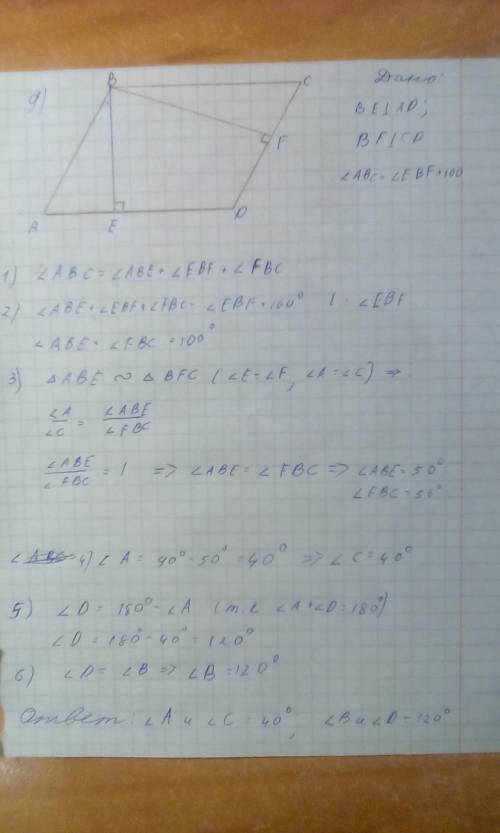 9)
B
C
F
A
E
D
Дано:
BE⊥AD;
BF⊥CD
∠ABC=∠EBF+100
1) ∠ABC=∠ABE+∠EBF+∠FBC
2) ∠ABE+∠EBF+∠FBC=∠EBF+100° | -∠EBF
∠ABE+∠FBC=100°
3) △ABE∾△BFC (∠E=∠F, ∠A=∠C) =>
∠A/∠C = ∠ABE/∠FBC
∠ABE/∠FBC = 1 => ∠ABE=∠FBC => ∠ABE=50°
∠FBC=50°
4) ∠A=90°-50°=40° => ∠C=40°
5) ∠D=180°-∠A (т.к ∠A+∠D=180°)
∠D=180°-40°=120°
6) ∠D=∠B=>∠B=120°
Ответ: ∠A и ∠C=40°; ∠B и ∠D-120°